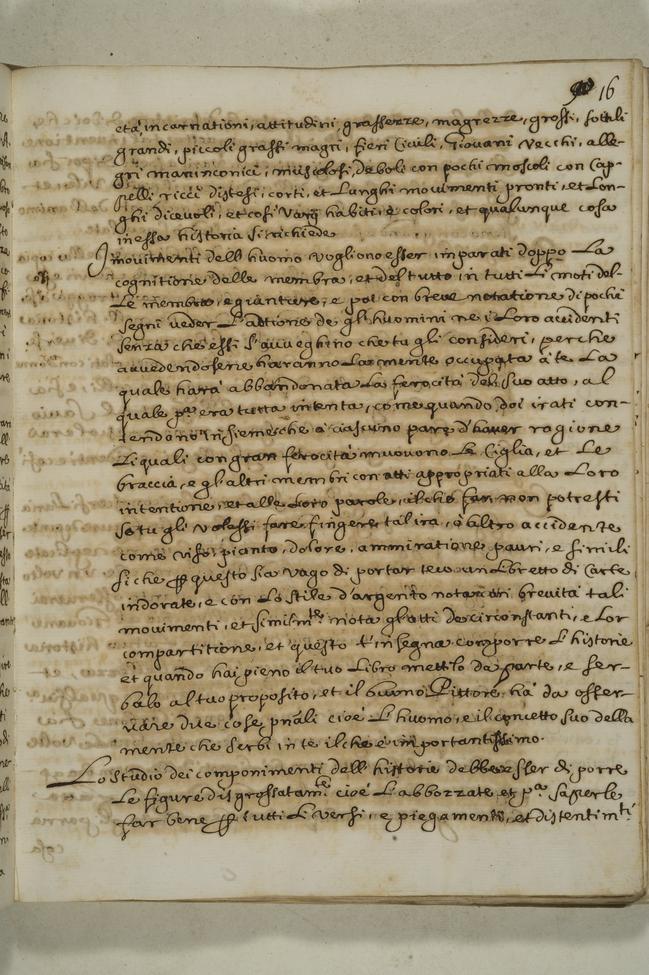 16
età, incarnationi, attitudini, grassezze, magrezze, grossi, sottili
grandi, piccoli grassi magri, fieri Civili, Giovani Vecchi, alle-
gri maninconici, muscolosi, deboli con pochi moscoli con Cap-
pelli ricci distesi, corti, et Lunghi movimenti pronti, et Lon-
ghi dicevoli, et così varij habiti, è colori, et qualunque cosa
in essa historia si richiede
I movimenti dell huomo vogliono esser imparati doppo La
cognitione delle membra, et del tutto in tutti Li moti del-
Le membra, e gionture, e poi con breve notatione di pochi
segni veder L'attione de gl'huomini ne i Loro accidenti
senza che essi s'avveghino che tu gli consideri, perche
avvedendosene haranno La mente occupata à te La
quale harà abbandonata La ferocità del suo atto, al
quale pª era tutta intenta, come quando doi irati con-
tendono insieme che à ciascuno pare d'haver ragione
Li quali con gran ferocità muovono Le Ciglia, et Le
braccia, e gl'altri membri con atti appropriati alla Loro
intentione, et alle Loro parole, ilche far non potresti
se tu gli volessi fare fingere tal ira, ò altro accidente
come riso, pianto, dolore, ammiratione, pauri, e simili
si che ꝑ questo sia vago di portar teco un Libretto di Carte
indorate, e con Lo stile d'argento notar con brevità tali
movimenti, et similmte nota gl'atti de circonstanti, e Lor
compartitione, et questo t'insegna comporre L'historie
et quando hai pieno il tuo Libro mettilo da parte, e ser-
balo al tuo proposito, et il buono Pittore, ha da osser-
vare due cose pnali cioè L'huomo, e il concetto suo della
mente che serbi in te ilche è importantissimo.
Lo studio dei componimenti dell historie debbe esser di porre
Le figure disgrossatamte cioè L'abbozzate, et pª saperle
far bene ꝑ tutti Li versi, e piegamenti, et distentimti